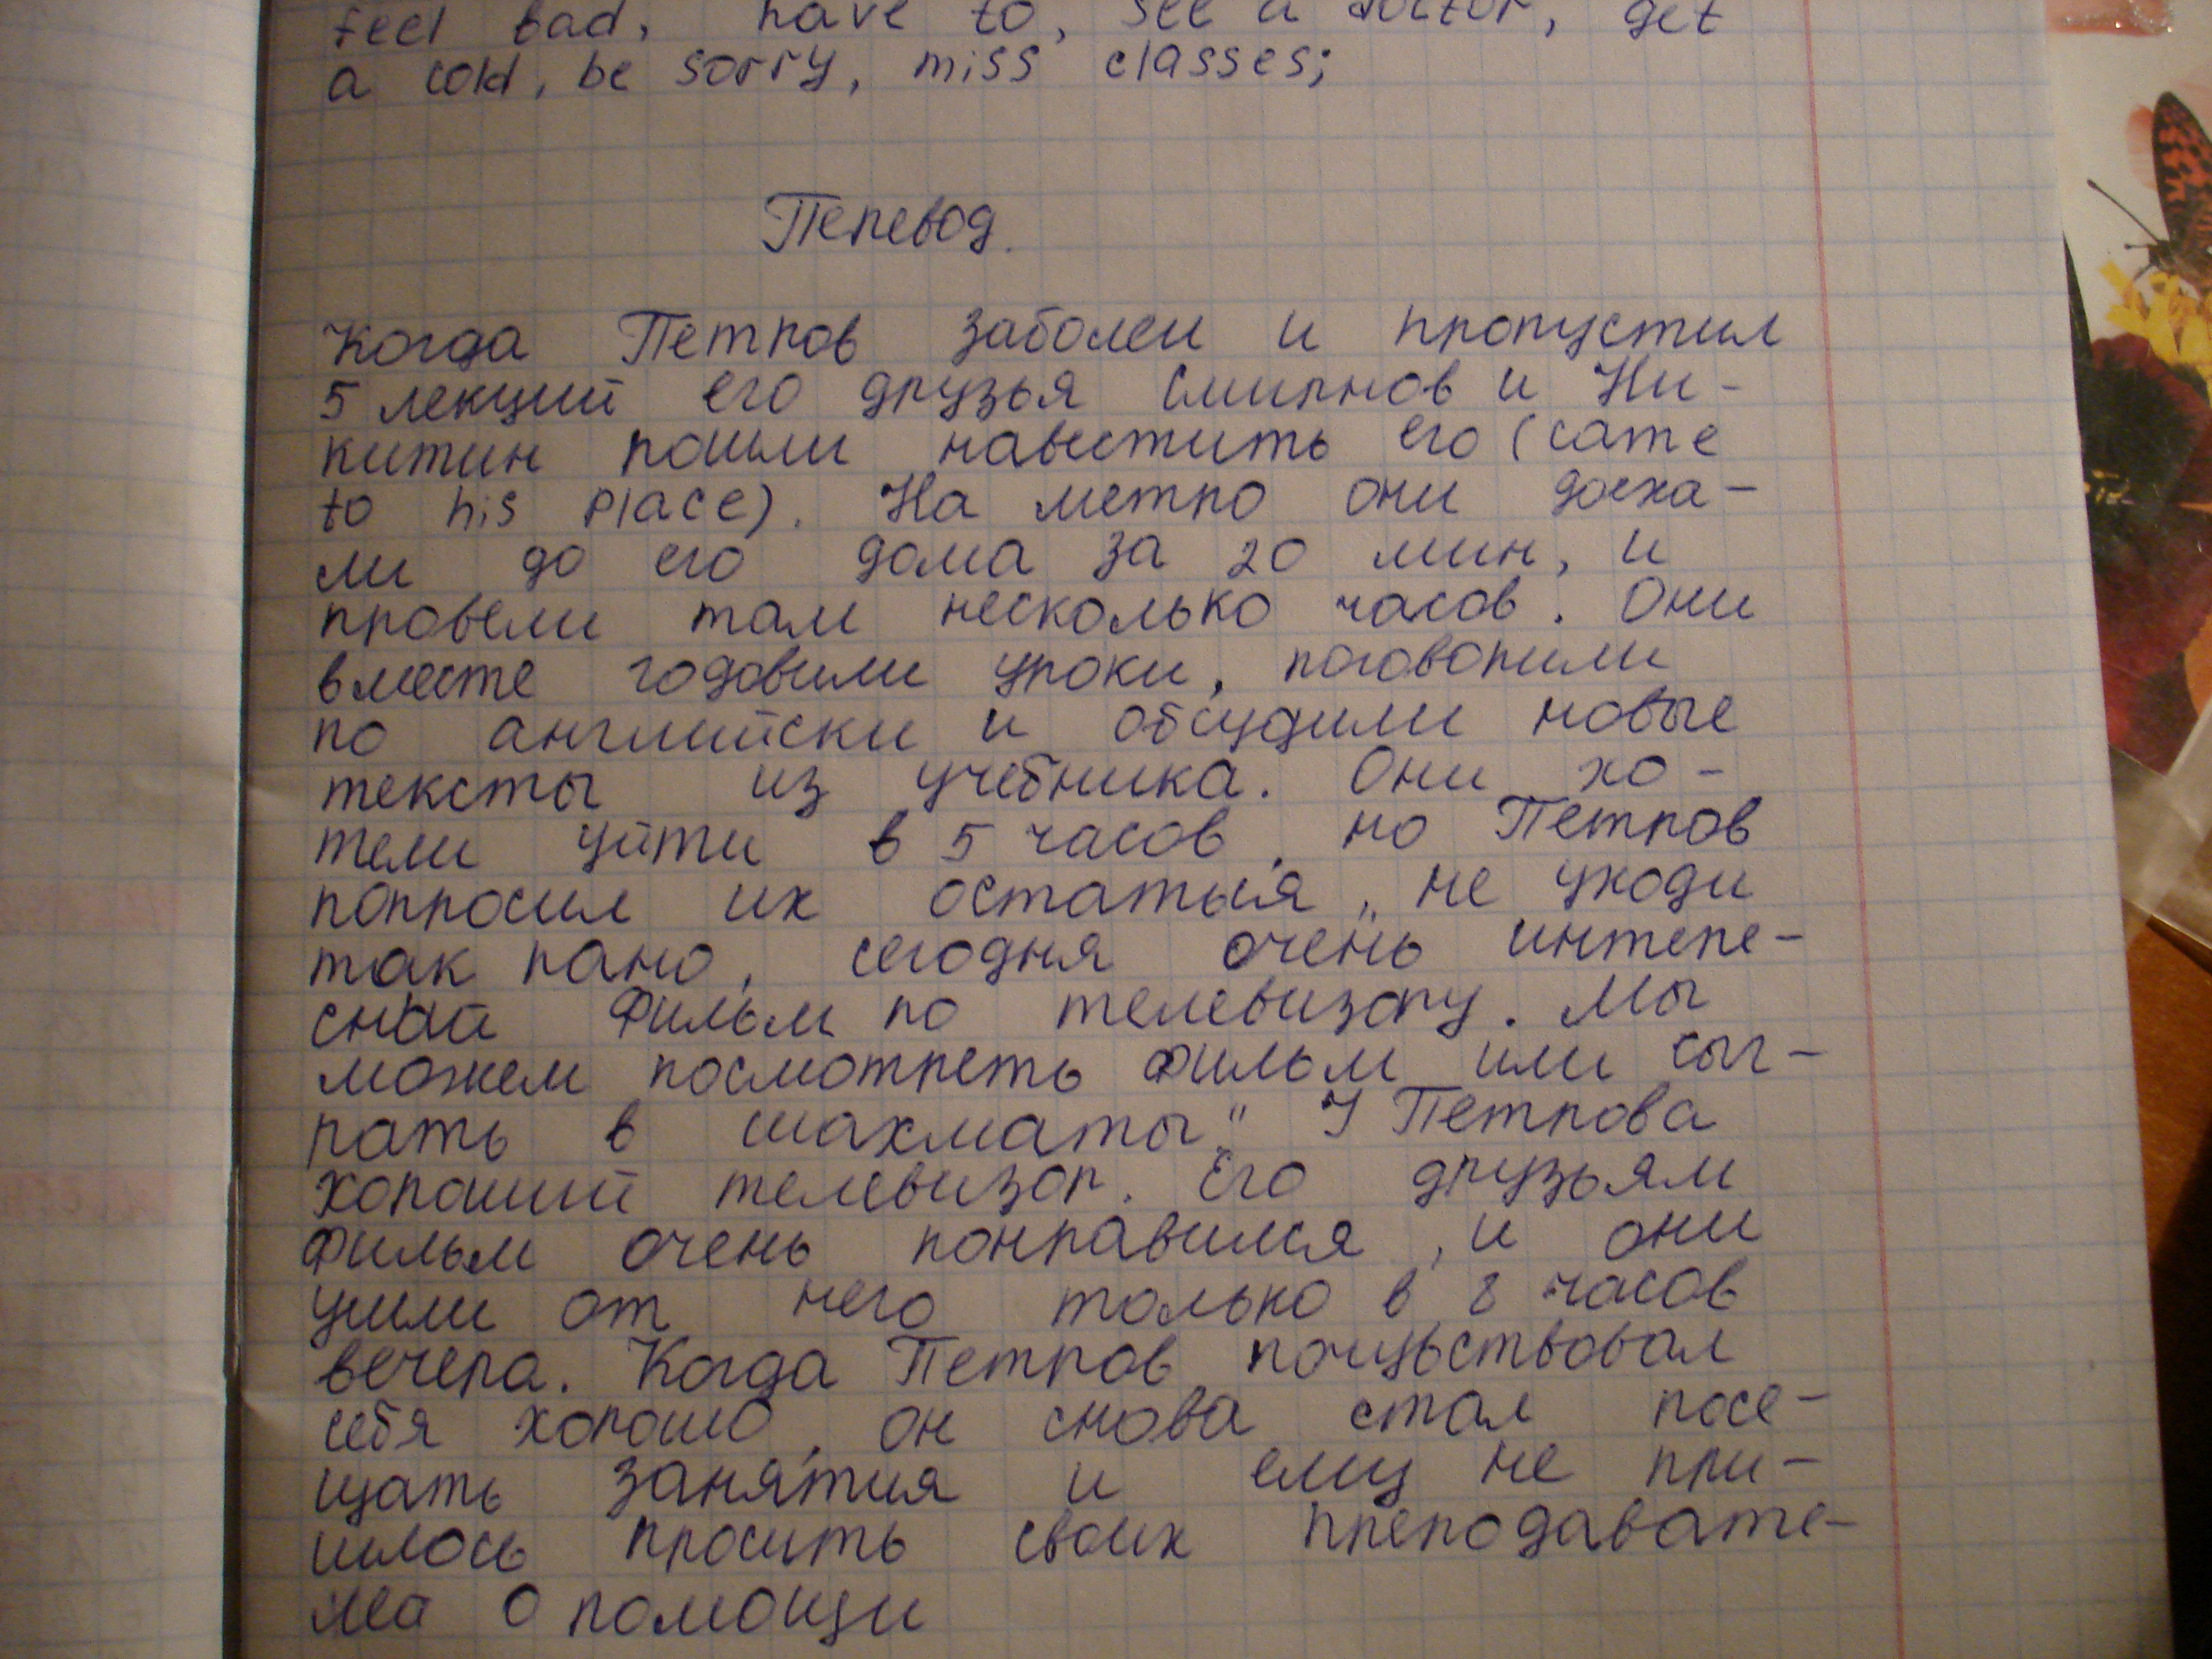 feel bad, have to, see a doctor, get
a cold, be sorry, miss classes;
Перевод.
Когда Петров заболел и пропустил
5 лекций его друзья Смирнов и Ни-
китин пошли навестить его (came
to his place). На метро они доеха-
ли до его дома за 20 мин, и
провели там несколько часов. Они
вместе годовили уроки, поговорили
по английски и обсудили новые
тексты из учебника. Они хо-
тели уйти в 5 часов, но Петров
попросил их остаться „не уходи
так рано, сегодня очень интере-
сный фильм по телевизору. Мы
можем посмотреть фильм или сыг-
рать в шахматы." У Петрова
хороший телевизор. Его друзьям
фильм очень понравился, и они
ушли от него только в 8 часов
вечера. Когда Петров почуьствовал
себя хорошо, он снова стал посе-
щать занятия и ему не при-
шлось просить своих преподавате-
лей о помощи